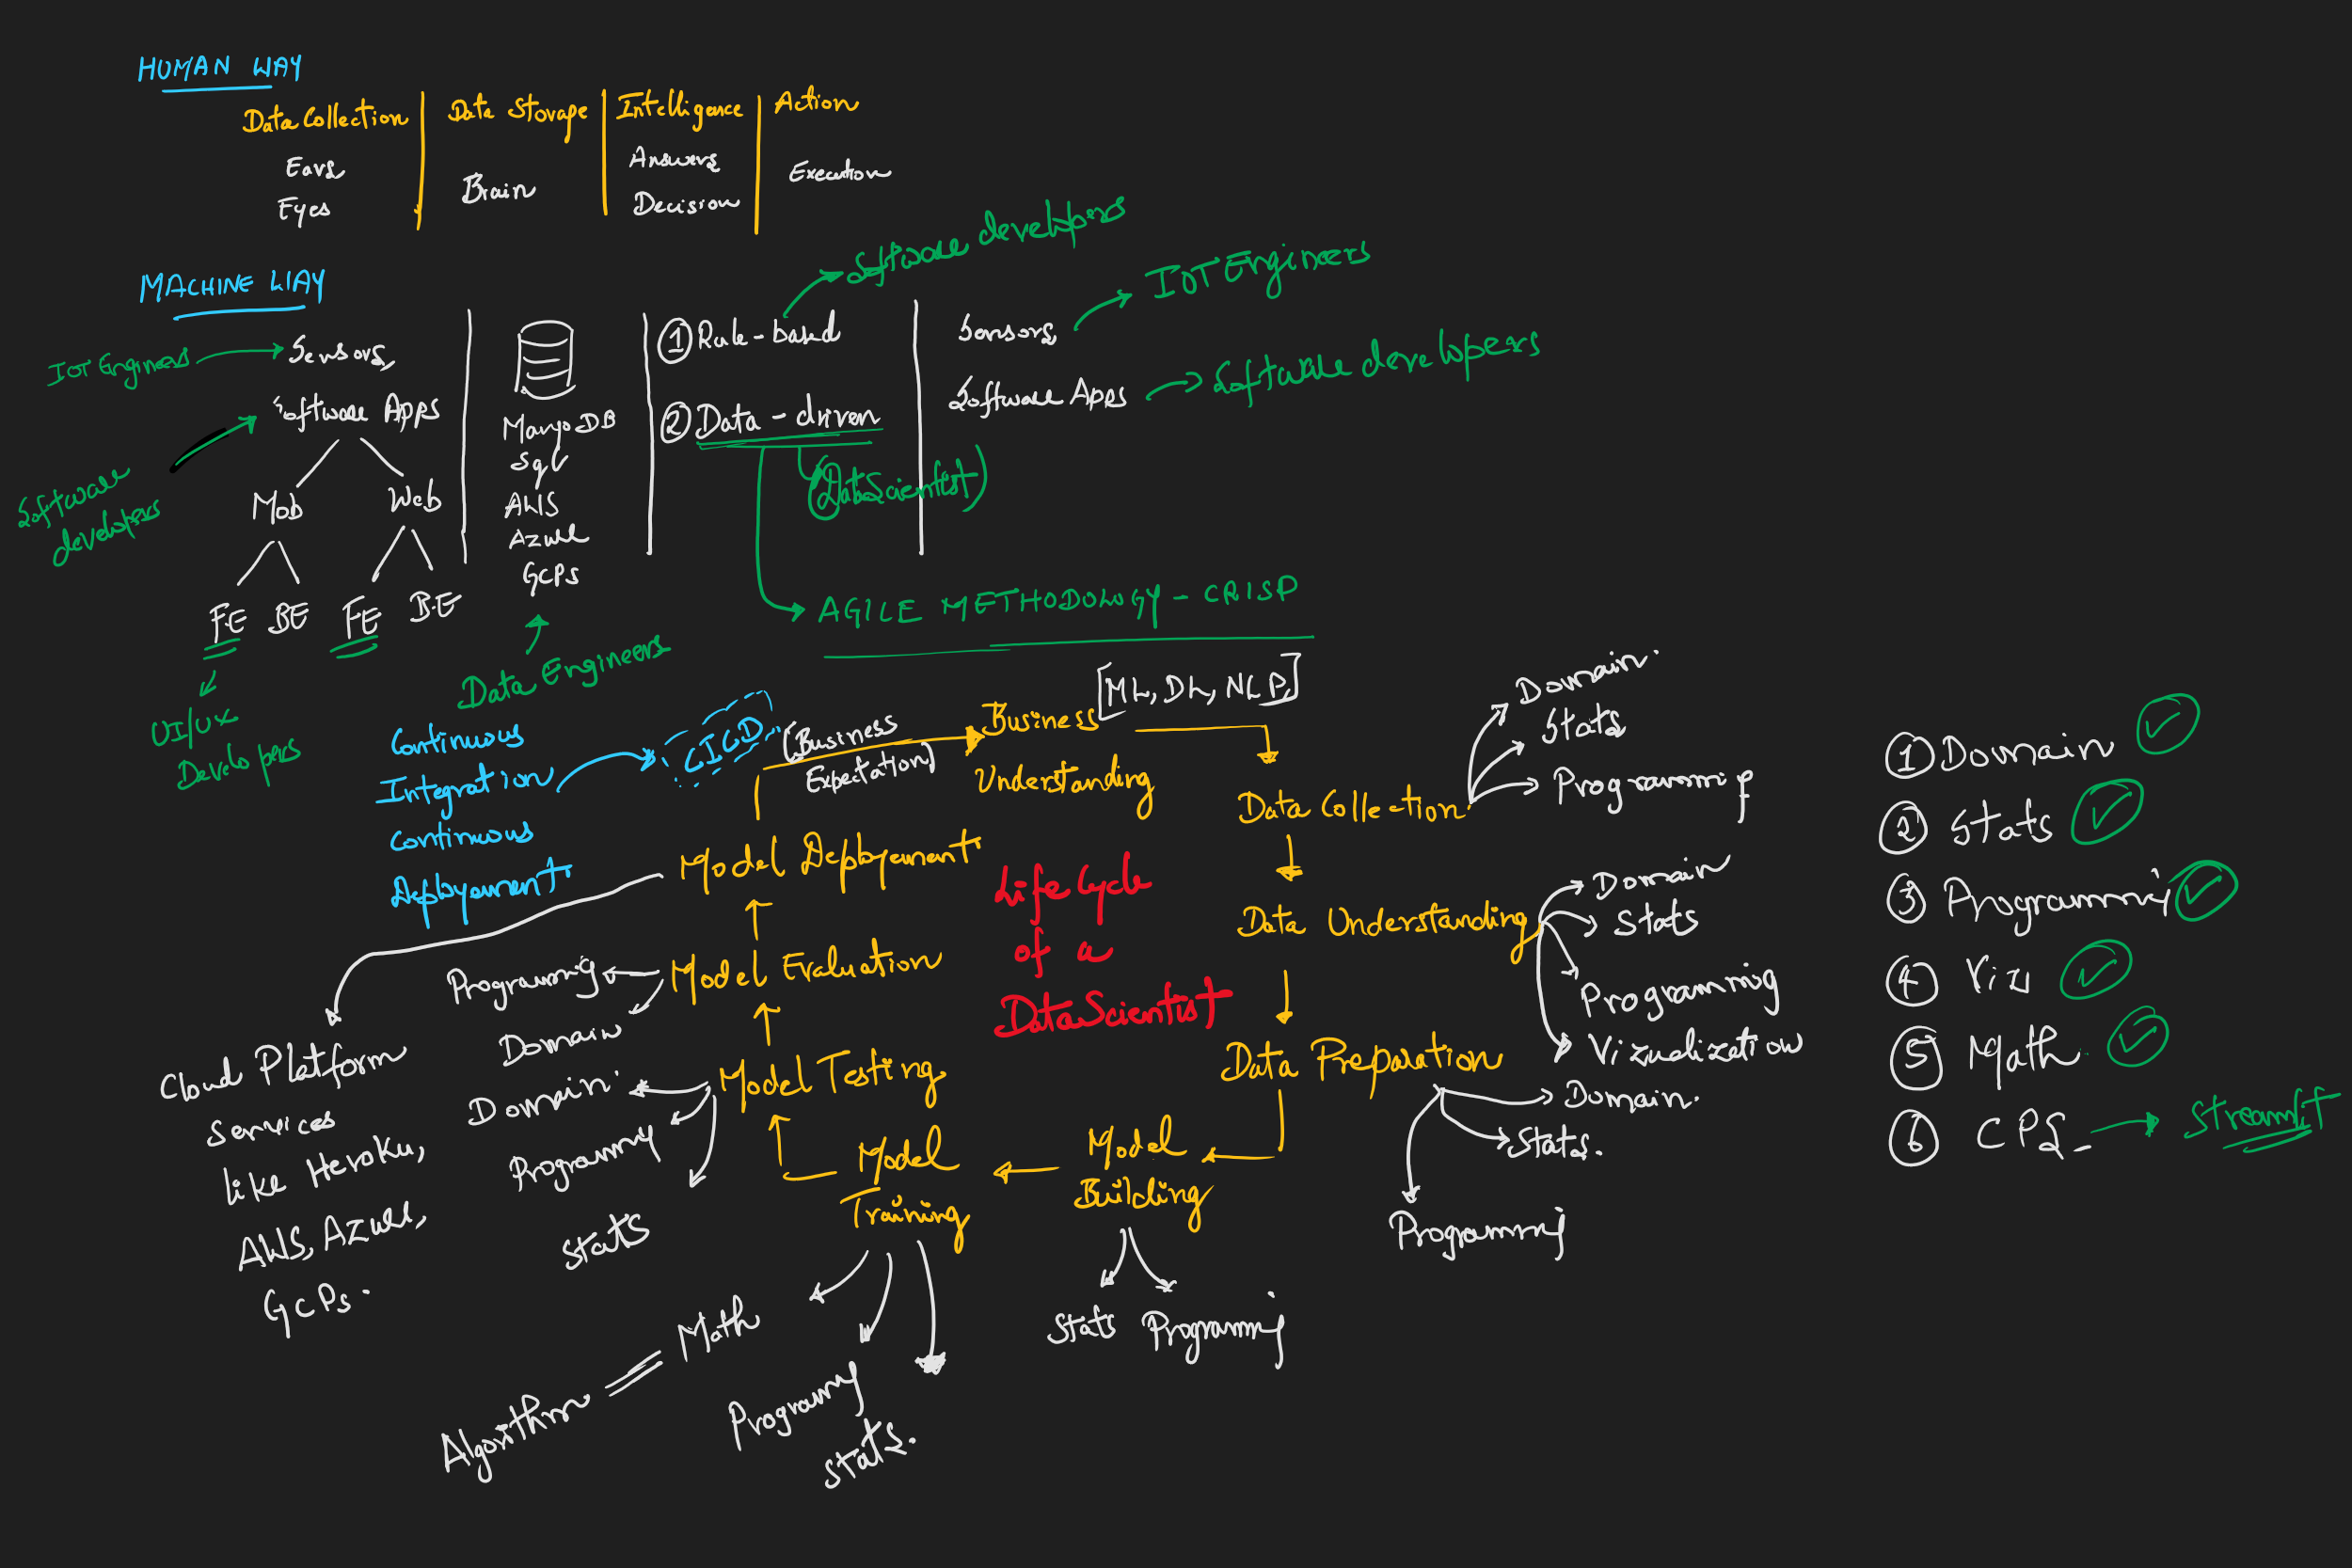 HUMAN WAY
Data Collection
Data Storage
Intelligence
Action
Ears
Eyes
Brain
Answers
Decision
Execution
MACHINE WAY
IoT Engineers
Sensors
Software Apps
Software
developers
Mob
Web
FE BE
FE B.E
UI/UX
Developers
MangoDB
Sql
AWS
Azure
GCPs
Data Engineers
① Rule-based
Software developers
② Data-driven
(DataScientist)
Sensors
IoT Engineers
Software Apps
Software developers
AGILE METHODOLOGY - CRISP
[ML, DL, NLP]
Continuous
Integration
Continuous
Deployement
CICD
(Business
Expectation)
Business
Understanding
Data Collection
Domain.
Stats
Programming
Data Understanding
Domain
Stats
Programming
Vizualization
Data Preparation
Domain.
Stats.
Programming
Model
Building
Stats Programming
Model
Training
Math
Algorithm
Programming
Stats.
Model Testing
Domain.
Programming
Stats
Model Evaluation
Programming
Domain
Model Deployement
Cloud Platform
Services
like Heroku,
AWS, Azure,
GCPs.
Life Cycle
of a
DataScientist
① Domain
② Stats
③ Programming
④ Viz
⑤ Math
⑥ CPS
Streamlit